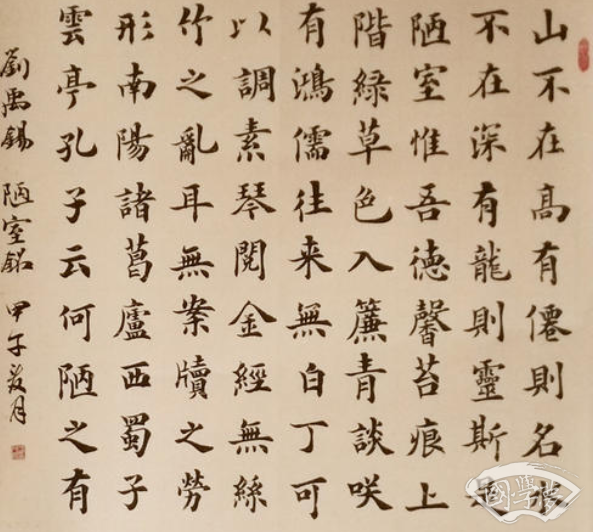 山不在高有僊則名水
不在深有龍則靈斯是
陋室惟吾德馨苔痕上
階綠草色入簾青談咲
有鴻儒往来無白丁可
以調素琴閱金經無絲
竹之亂耳無案牘之勞
形南陽諸葛廬西蜀子
雲亭孔子云何陋之有
劉禹錫 陋室銘 甲午夏月
國學夢